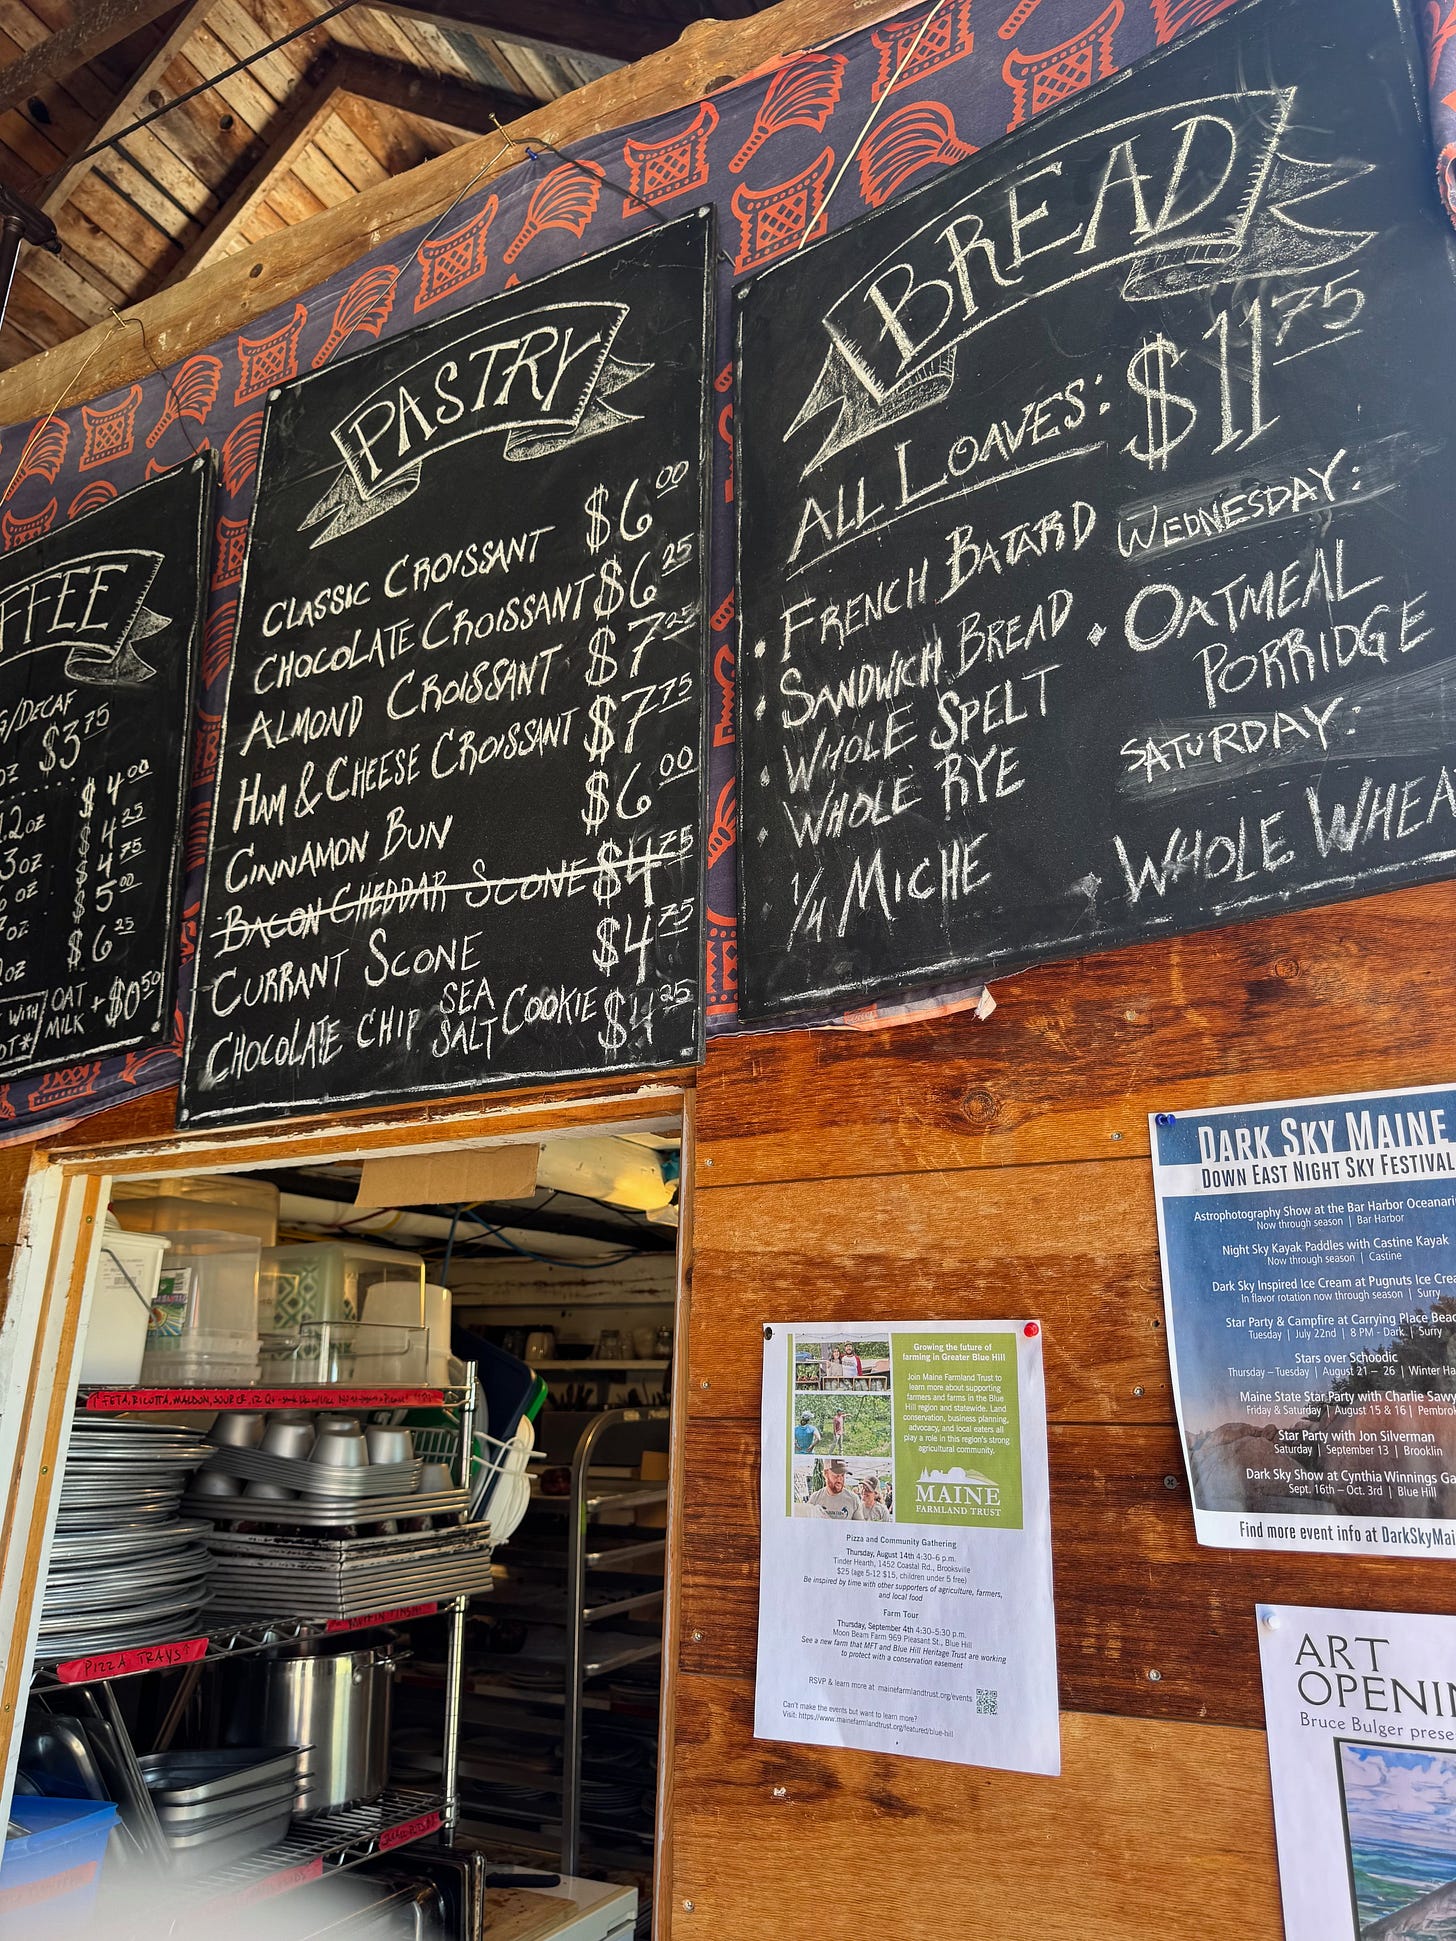 PASTRY
CLASSIC CROISSANT $6.00
CHOCOLATE CROISSANT $6.25
ALMOND CROISSANT $7.25
HAM & CHEESE CROISSANT $7.75
CINNAMON BUN $6.00
BACON CHEDDAR SCONE $4.75
CURRANT SCONE $4.75
CHOCOLATE CHIP SEA SALT COOKIE $4.25
BREAD
ALL LOAVES: $11.75
• FRENCH BATARD
• SANDWICH BREAD
• WHOLE SPELT
• WHOLE RYE
1/4 MICHE
WEDNESDAY:
• OATMEAL
PORRIDGE
SATURDAY:
• WHOLE WHEA
FFEE
G/DECAF
OZ $3.75
2oz $4.00
3oz $4.25
oz $4.75
oz $5.00
oz $6.25
WITH OAT
OT* MILK +$0.50
FETA, RICOTTA, MALDON,
PIZZA TRAYS↑
MUFFIN TINS
Growing the future of
farming in Greater Blue Hill
Join Maine Farmland Trust to
learn more about supporting
farmers and farms in the Blue
Hill region and statewide. Land
conservation, business planning,
advocacy, and local eaters all
play a role in this region's strong
agricultural community.
MAINE
FARMLAND TRUST
Pizza and Community Gathering
Thursday, August 14th 4:30–6 p.m.
Tinder Hearth, 1452 Coastal Rd., Brooksville
$25 (age 5-12 $15, children under 5 free)
Be inspired by time with other supporters of agriculture, farmers,
and local food
Farm Tour
Thursday, September 4th 4:30-5:30 p.m.
Moon Beam Farm 969 Pleasant St., Blue Hill
See a new farm that MFT and Blue Hill Heritage Trust are working
to protect with a conservation easement
RSVP & learn more at mainefarmlandtrust.org/events
Can't make the events but want to learn more?
Visit: https://www.mainefarmlandtrust.org/featured/blue-hill
DARK SKY MAINE
DOWN EAST NIGHT SKY FESTIVAL
Astrophotography Show at the Bar Harbor Oceanari
Now through season | Bar Harbor
Night Sky Kayak Paddles with Castine Kayak
Now through season | Castine
Dark Sky Inspired Ice Cream at Pugnuts Ice Crea
In flavor rotation now through season | Surry
Star Party & Campfire at Carrying Place Beac
Tuesday | July 22nd | 8 PM - Dark | Surry
Stars over Schoodic
Thursday – Tuesday | August 21 – 26 | Winter Ha
Maine State Star Party with Charlie Sawy
Friday & Saturday | August 15 & 16 | Pembro
Star Party with Jon Silverman
Saturday | September 13 | Brooklin
Dark Sky Show at Cynthia Winnings Ga
Sept. 16th – Oct. 3rd | Blue Hill
Find more event info at DarkSkyMai
ART
OPENIN
Bruce Bulger prese